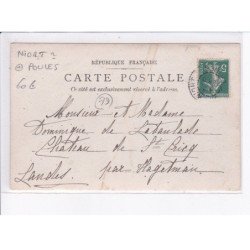 NIORT ?
@ POULES
60 €
RÉPUBLIQUE FRANÇAISE
CARTE POSTALE
Ce côté est exclusivement réservé à l'adresse.
(79)
Monsieur et Madame
Dominique de Labaulade
Château de St Cricq
Landes par Hagetman